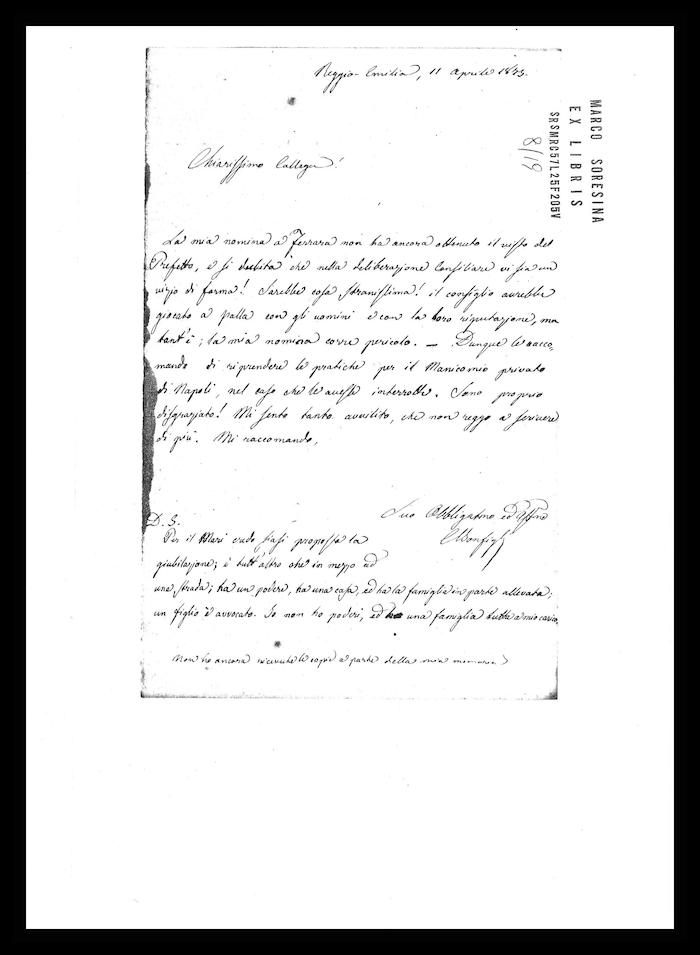 Reggio-Emilia, 11 Aprile 1873.
MARCO SORESINA
EX LIBRIS
SRSMRC57L25F205V
8/19
Chiarissimo Collega!
La mia nomina a Ferrara non ha ancora ottenuto il visto del
Prefetto, e si dubita che nella deliberazione Consiliare vi sia un
vizio di forma! Sarebbe cosa stranissima! il consiglio avrebbe
giocato a palla con gli uomini e con la loro riputazione, ma
tant'è; la mia nomina corre pericolo. — Dunque le racco-
mando di riprendere le pratiche per il Manicomio privato
di Napoli, nel caso che le avesse interrotte. Sono proprio
disgraziato! Mi sento tanto avvilito, che non reggo a scrivere
di più. Mi raccomando,
Suo Obbligatmo ed Affmo
CBonfigli
P. S.
Per il Mari credo siasi proposta la
giubilazione; è tutt'altro che in mezzo ad
una strada; ha un podere, ha una casa, ed ha la famiglia in parte allevata;
un figlio è avvocato. Io non ho poderi, ed ho una famiglia tutta a mio carico.
Non ho ancora ricevute le copie a parte della mia memoria